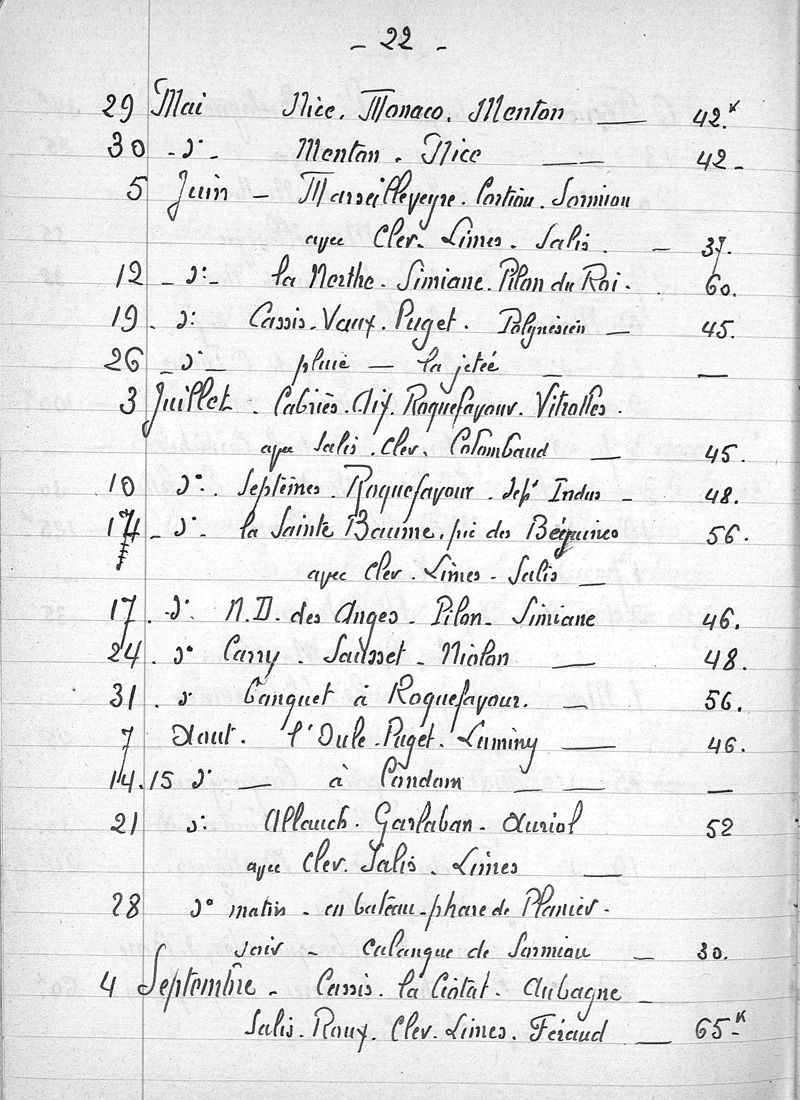 - 22 -
29 Mai Nice. Monaco. Menton — 42.K
30 - d° - Menton. Nice — — 42 -
5 Juin - Marseilleveyre. Cortiou. Sormiou
avec Cler. Limes. Salis. — 37.
12 - d° - la Nerthe. Simiane. Pilon du Roi. 60.
19. d° Cassis. Vaux. Puget. Polynésien — 45.
26 - d° - pluie — la jetée — —
3 Juillet. Cabriès. Aix. Roquefavour. Vitrolles.
avec Salis. Cler. Colombaud — 45.
10 d°. Septèmes. Roquefavour. Indus - 48.
14 - d° - la Sainte Baume. pic des Béguines 56.
avec Cler. Limes - Salis —
17. d°. N.D. des Anges. Pilon. Simiane 46.
24. d° Carry. Sausset - Niolon — 48.
31. d° Banquet à Roquefavour. — 56.
7 Aout. l'Oule. Puget. Luminy — 46.
14.15 d° — à — — —
21 d° Allauch. Garlaban - Auriol 52
avec Cler. Salis. Limes —
28 d° matin - en bateau - phare de Planier.
soir - calanque de Sormiou — 30.
4 Septembre - Cassis. la Ciotat. Aubagne -
Salis. Roux. Cler. Limes. Féraud — 65-K